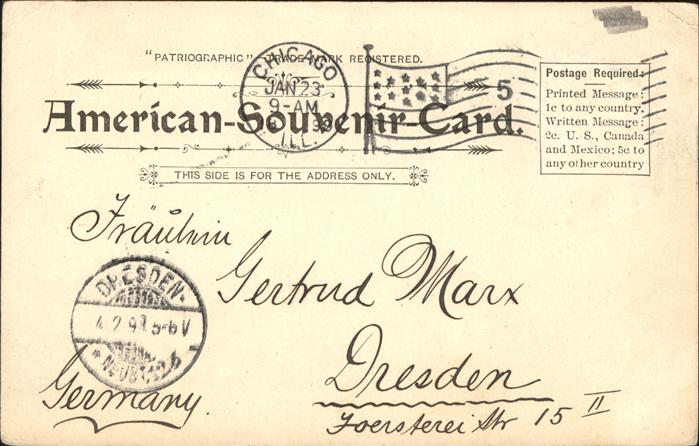 "PATRIOGRAPHIC" TRADE MARK REGISTERED.
CHICAGO
JAN 23
9-AM
ILL.
5
American-Souvenir-Card.
Postage Required:
Printed Message:
1c to any country.
Written Message:
2c. U. S., Canada
and Mexico; 5c to
any other country
THIS SIDE IS FOR THE ADDRESS ONLY.
Fräulein
Gertrud Marx
DRESDEN-
4 2 9 5-6 V
NEUST.
Dresden
Germany.
Foersterei Str 15 II